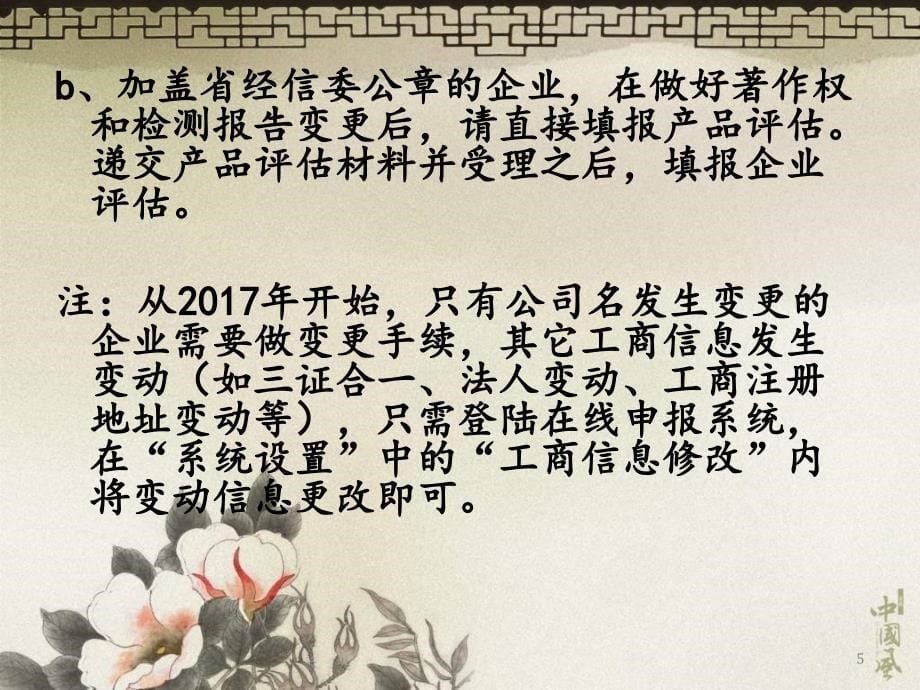 b、加盖省经信委公章的企业，在做好著作权
和检测报告变更后，请直接填报产品评估。
递交产品评估材料并受理之后，填报企业
评估。
注：从2017年开始，只有公司名发生变更的
企业需要做变更手续，其它工商信息发生
变动（如三证合一、法人变动、工商注册
地址变动等），只需登陆在线申报系统，
在“系统设置”中的“工商信息修改”内
将变动信息更改即可。
中國风
5